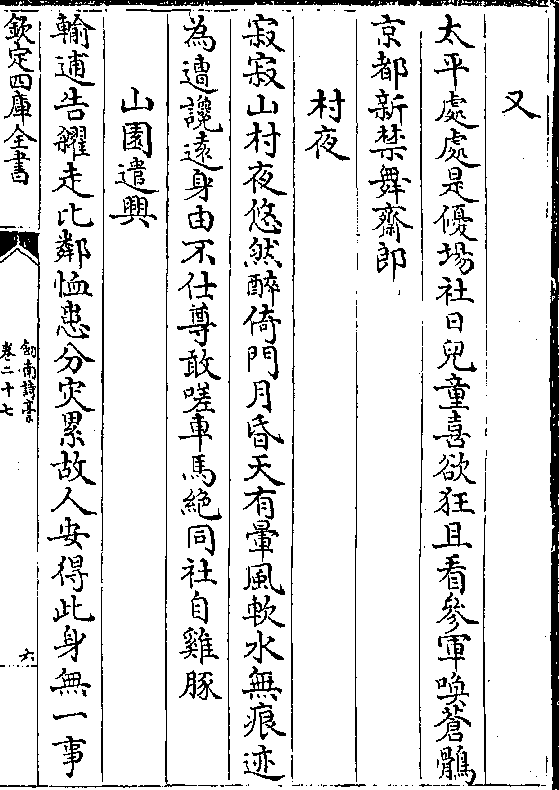 又
太平處處是優場社日兒童喜欲狂且看參軍喚蒼鶻
京都新禁舞齋郎
村夜
寂寂山村夜悠然醉倚門月昏天有暈風軟水無痕迹
為遭讒遠身由不仕尊敢嗟車馬絶同社自雞豚
山園遣興
輸逋告糴走比鄰恤患分灾累故人安得此身無一事
欽定四庫全書
劍南詩藁
卷二十七
六